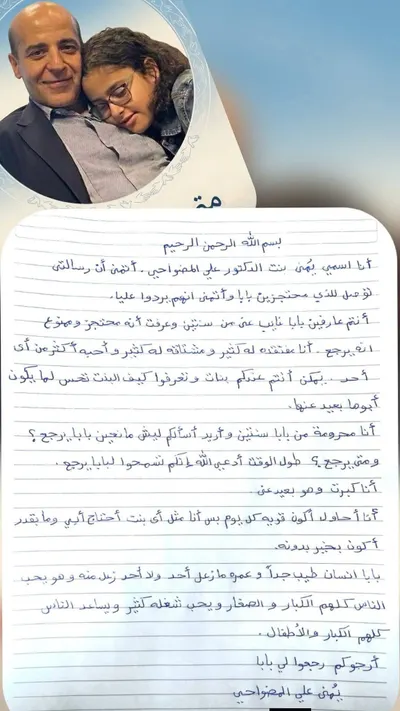 بسم الله الرحمن الرحيم
أنا اسمي يُمنى بنت الدكتور علي المضواحي. أتمنى أن رسالتي
توصل للذي محتجزين بابا وأتمنى انهم يردوا عليا.
أنتم عارفين بابا غايب عني من سنتين وعرفت أنه محتجز وممنوع
انه يرجع. أنا مفتقده له كثير ومشتاقة له كثير وأحبه أكثر من أي
أحد.. يمكن أنتم عندكم بنات وتعرفوا كيف البنت تحس لما يكون
أبوها بعيد عنها.
أنا محرومة من بابا سنتين وأريد أسألكم ليش مانعين بابا يرجع؟
ومتى يرجع؟ طول الوقت أدعي الله إنكم تسمحوا لبابا يرجع.
أنا كبرت وهو بعيد عني.
أنا أحاول أكون قويه كل يوم بس أنا مثل أي بنت أحتاج أبي وما بقدر
أكون بخير بدونه.
بابا انسان طيب جداً وعمره ما زعل أحد ولا أحد زعل منه وهو يحب
الناس كلهم الكبار والصغار ويحب شغله كثير ويساعد الناس
كلهم الكبار والأطفال.
أرجوكم رجعوا لي بابا
يُمنى علي المضواحي